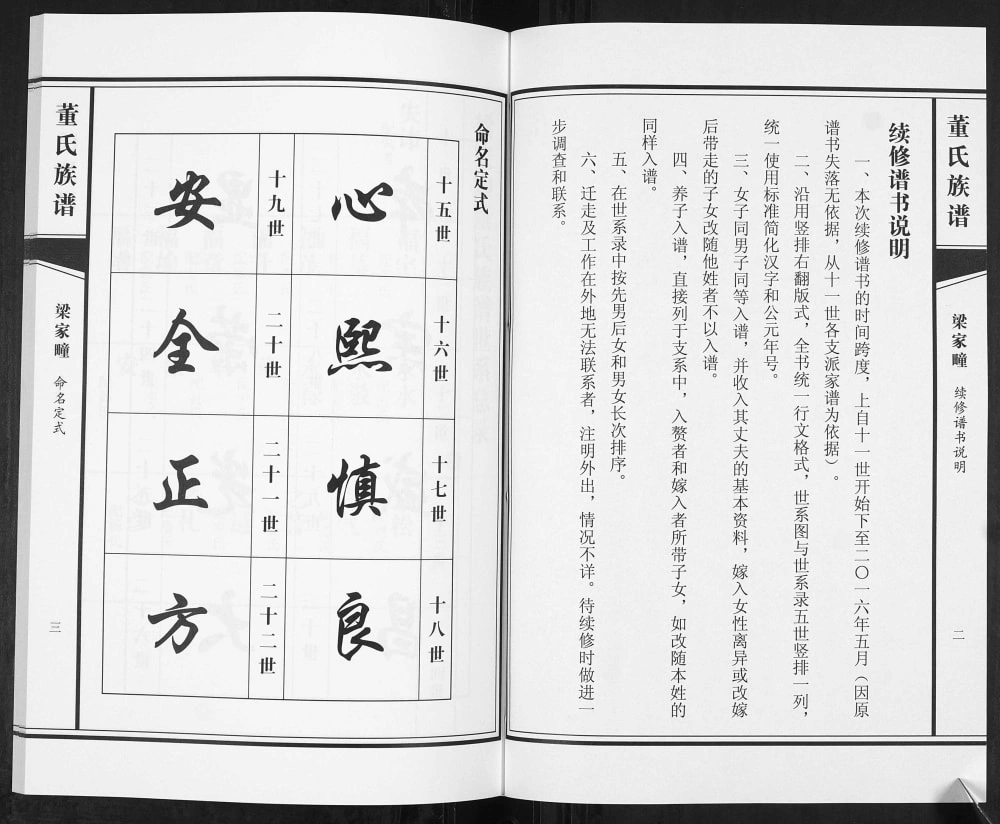 董氏族谱
梁家疃 续修谱书说明
二
续修谱书说明
一、本次续修谱书的时间跨度，上自十一世开始下至二〇一六年五月（因原
谱书失落无依据，从十一世各支派家谱为依据）。
二、沿用竖排右翻版式，全书统一行文格式，世系图与世系录五世竖排一列，
统一使用标准简化汉字和公元年号。
三、女子同男子同等入谱，并收入其丈夫的基本资料，嫁入女性离异或改嫁
后带走的子女改随他姓者不以入谱。
四、养子入谱，直接列于支系中，入赘者和嫁入者所带子女，如改随本姓的
同样入谱。
五、在世系录中按先男后女和男女长次排序。
六、迁走及工作在外地无法联系者，注明外出，情况不详。待续修时做进一
步调查和联系。
命名定式
十五世
十六世
十七世
十八世
心
熙
慎
良
十九世
二十世
二十一世
二十二世
安
全
正
方
董氏族谱
梁家疃 命名定式
三